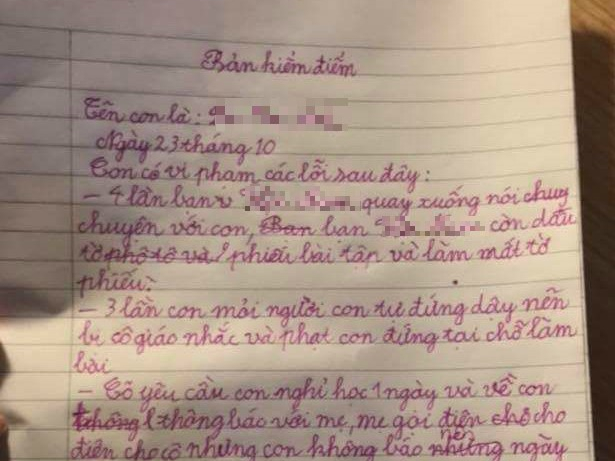 Bản kiểm điểm
Tên con là:
Ngày 23 tháng 10
Con có vi phạm các lỗi sau đây:
- 4 lần bạn quay xuống nói chuy
chuyện với con, Bạn bạn còn dấu
tờ phô tô và phiếu bài tập và làm mất tờ
phiếu.
- 3 lần con mỏi người con tự đứng dậy nên
bị cô giáo nhắc và phạt con đứng tại chỗ làm
bài
- Cô yêu cầu con nghỉ học 1 ngày và về con
không thông báo với mẹ, mẹ gọi điện chô cho
điện cho cô nhưng con không báo nên những ngày